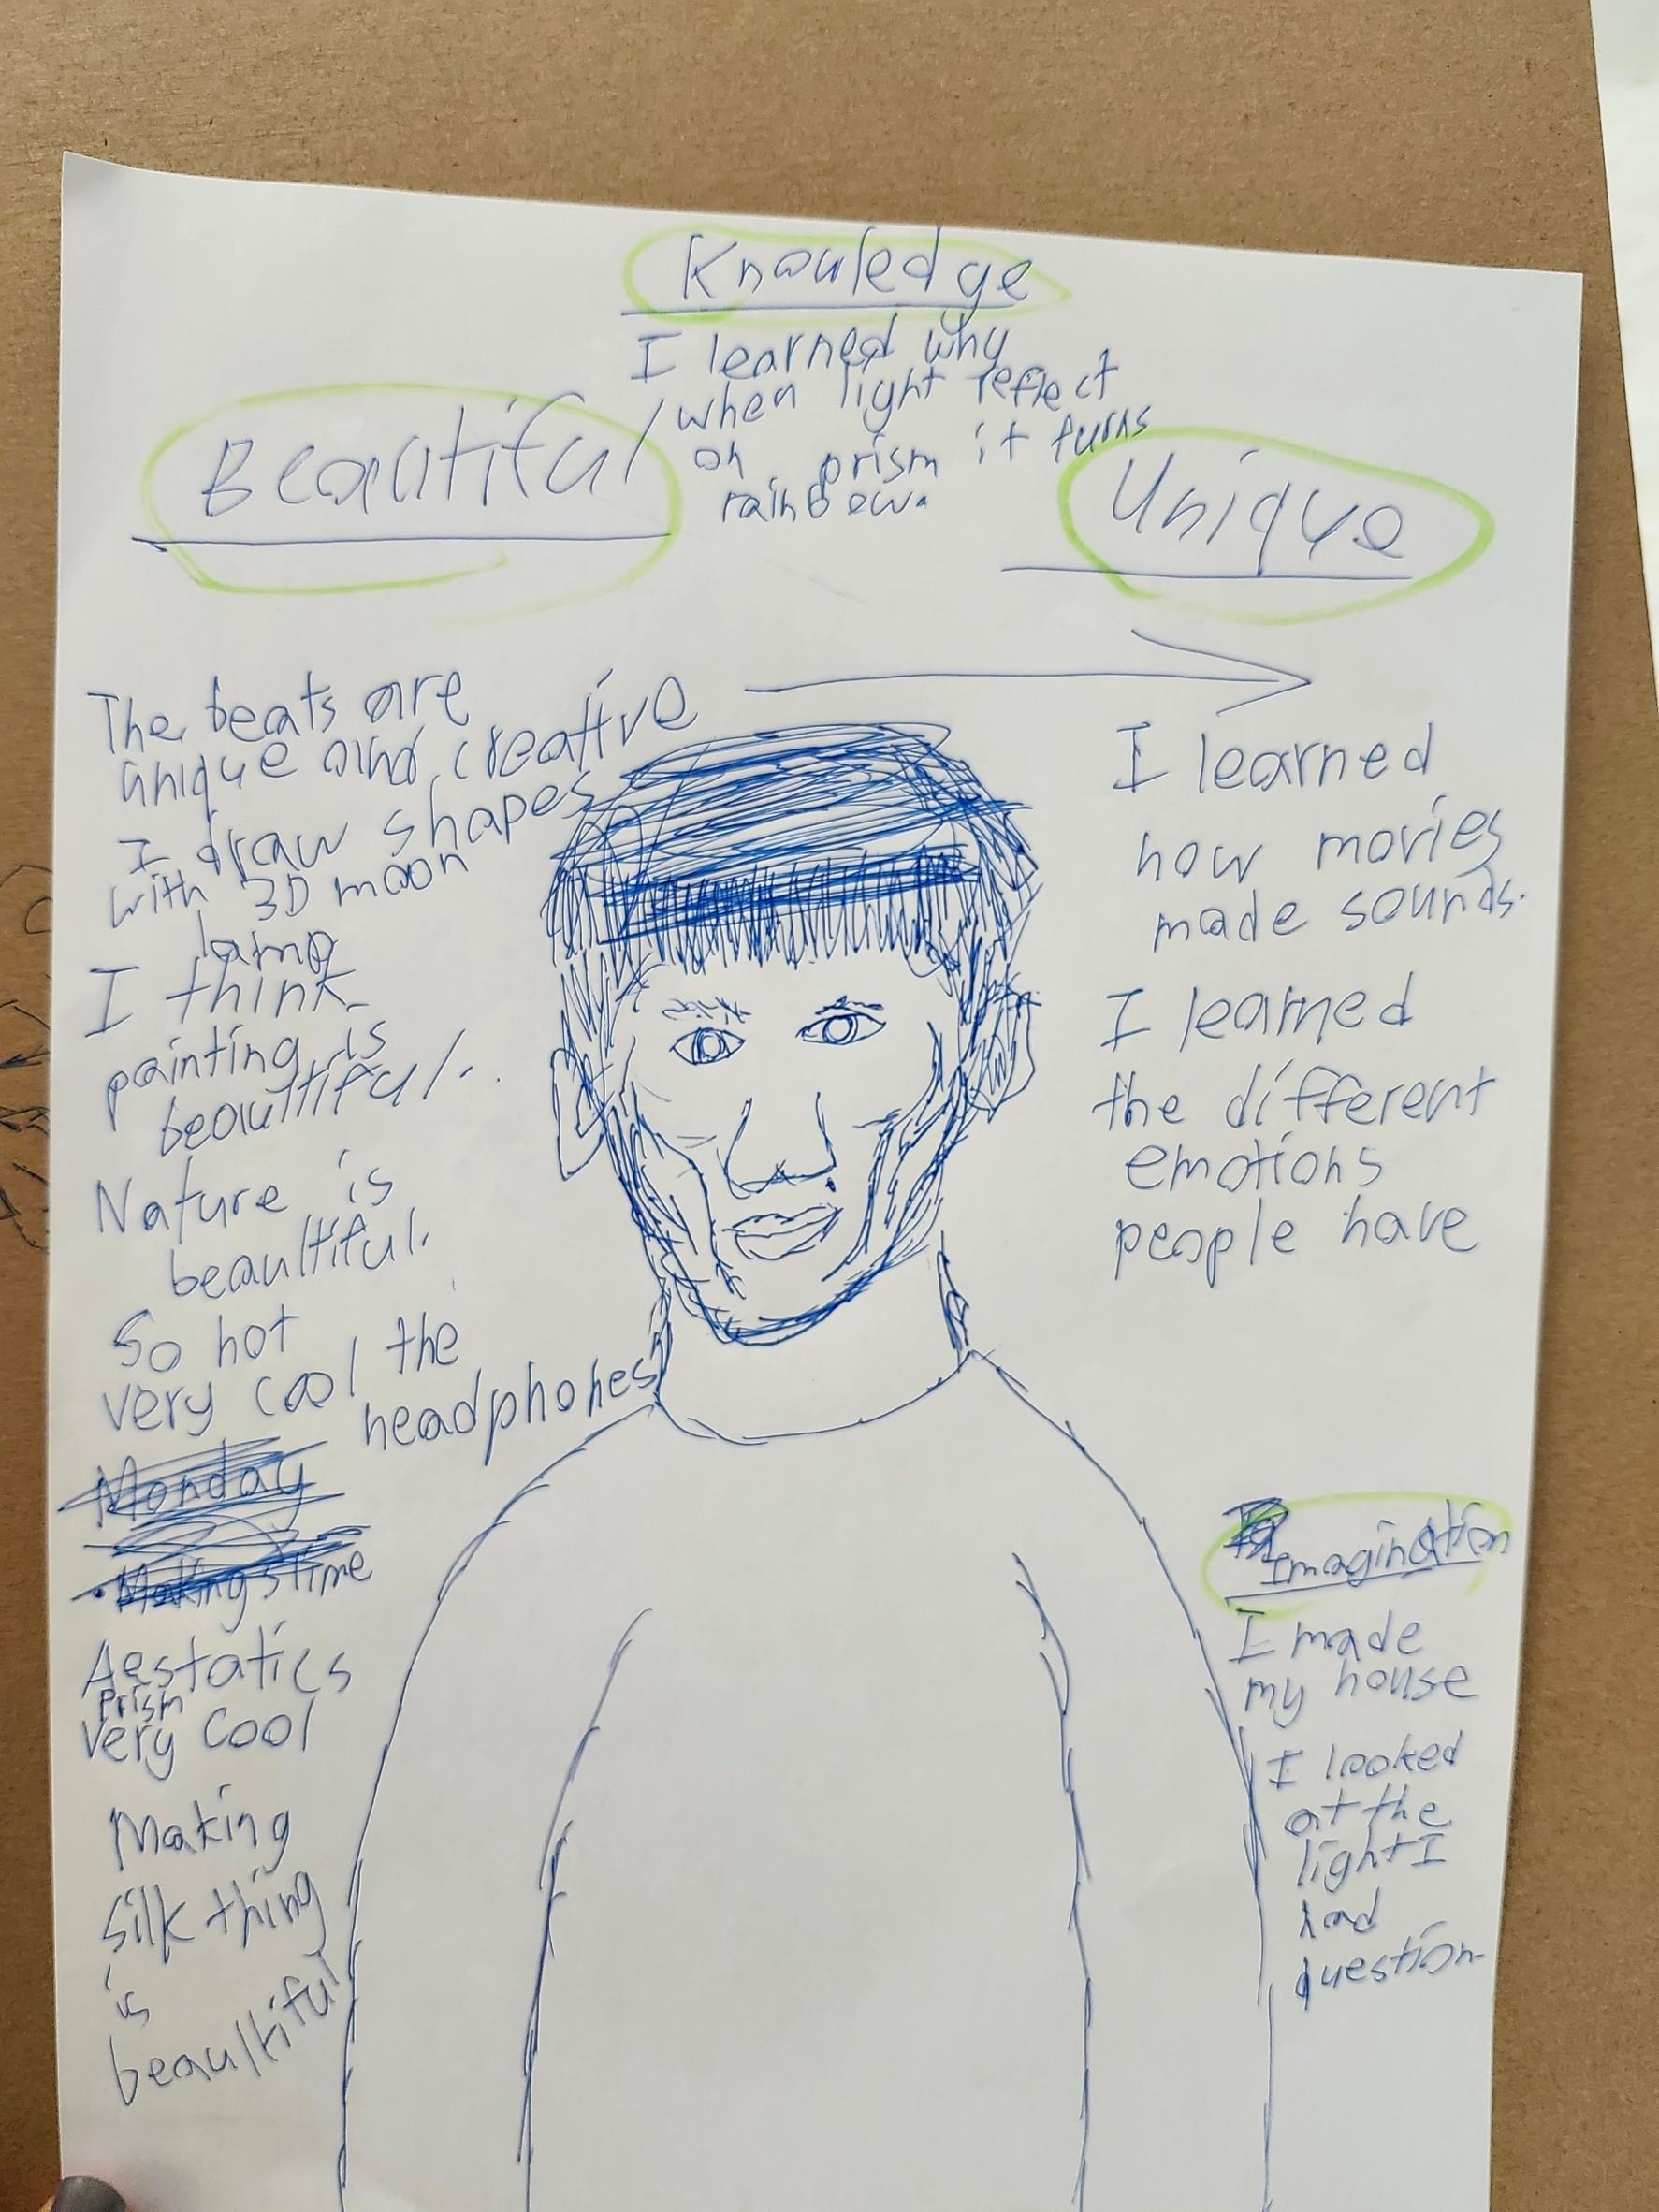 Knowledge
I learned why
when light reflect
on prism it turns
rainbow.
Beautiful
The beats are
unique and creative
I draw shapes
with 3D moon
lamp
I think
painting is
beaultiful.
Nature is
beaultiful.
So hot
very cool the
headphones
Monday
Making stime
Aestatics
prism
very cool
Making
silk thing
is
beaultiful
Unique
I learned
how movies
made sounds.
I learned
the different
emotions
people have
Imagination
I made
my house
I looked
at the
light I
had
question